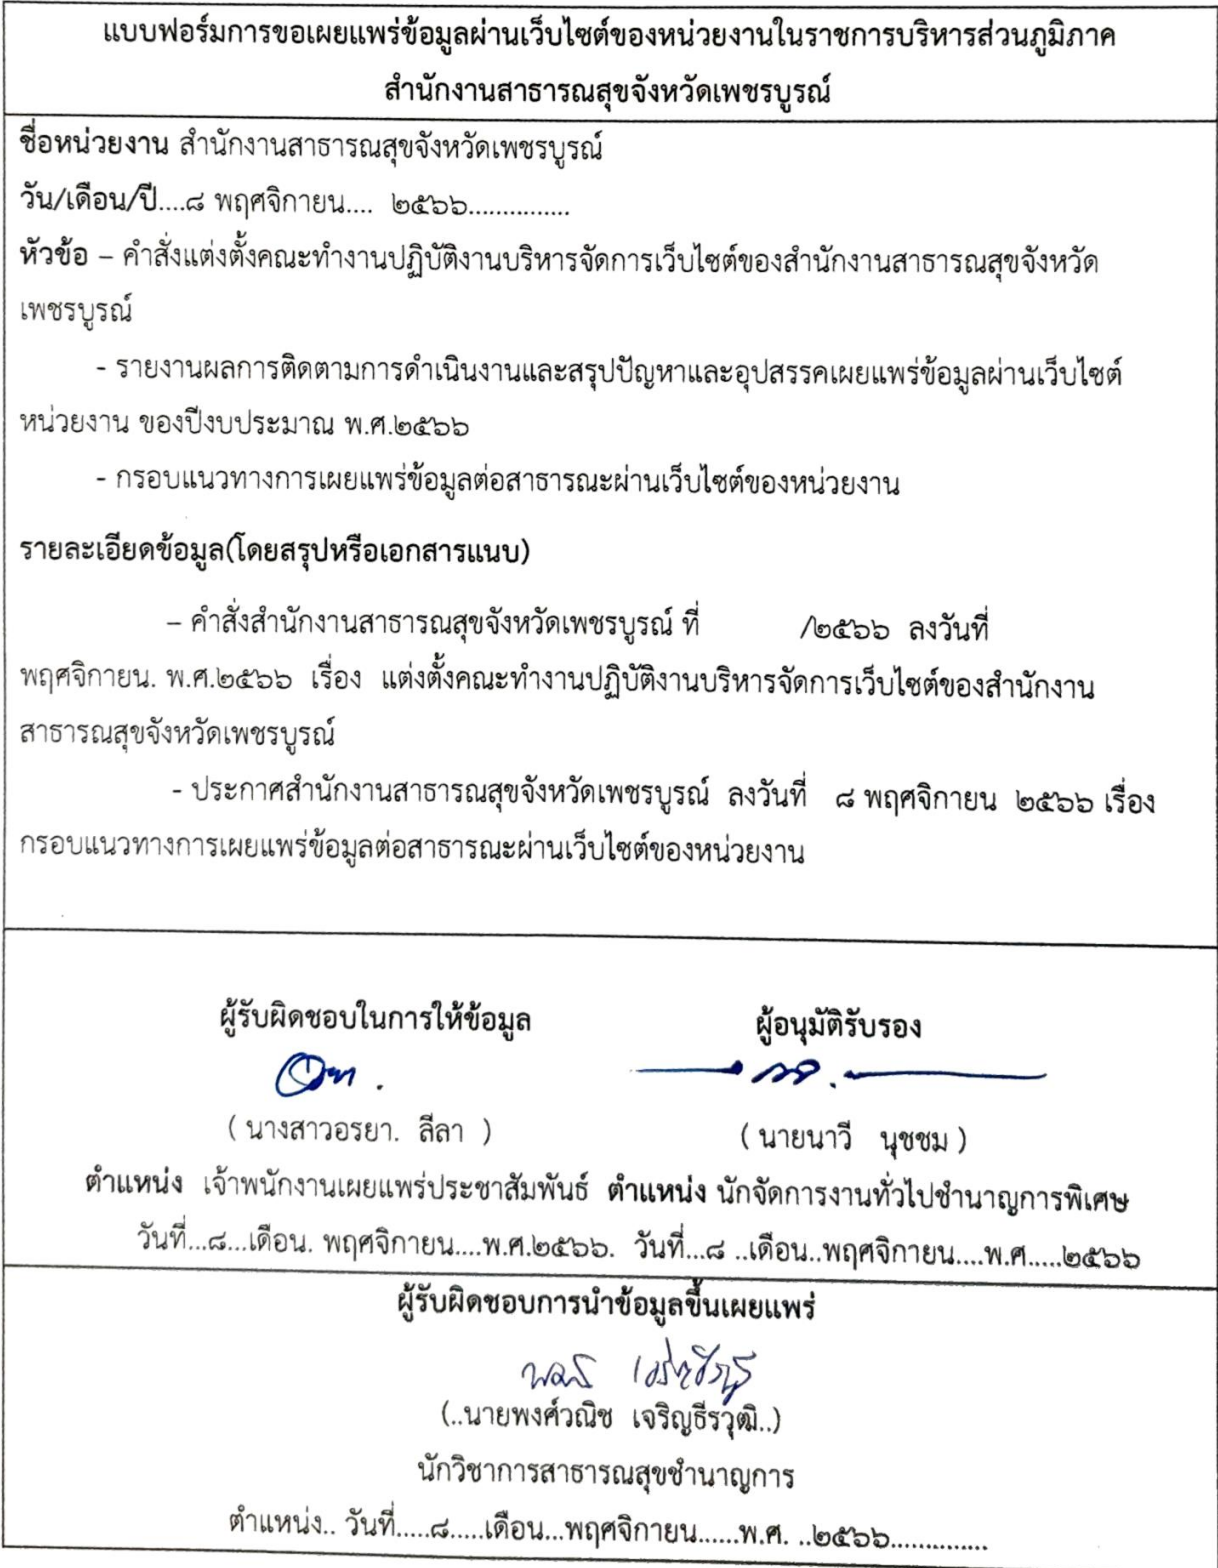 แบบฟอร์มการขอเผยแพร่ข้อมูลผ่านเว็บไซต์ของหน่วยงานในราชการบริหารส่วนภูมิภาค
สำนักงานสาธารณสุขจังหวัดเพชรบูรณ์
ชื่อหน่วยงาน สำนักงานสาธารณสุขจังหวัดเพชรบูรณ์
วัน/เดือน/ปี....๘ พฤศจิกายน.... ๒๕๖๖...............
หัวข้อ – คำสั่งแต่งตั้งคณะทำงานปฏิบัติงานบริหารจัดการเว็บไซต์ของสำนักงานสาธารณสุขจังหวัด
เพชรบูรณ์
- รายงานผลการติดตามการดำเนินงานและสรุปปัญหาและอุปสรรคเผยแพร่ข้อมูลผ่านเว็บไซต์
หน่วยงาน ของปีงบประมาณ พ.ศ.๒๕๖๖
- กรอบแนวทางการเผยแพร่ข้อมูลต่อสาธารณะผ่านเว็บไซต์ของหน่วยงาน
รายละเอียดข้อมูล(โดยสรุปหรือเอกสารแนบ)
– คำสั่งสำนักงานสาธารณสุขจังหวัดเพชรบูรณ์ ที่ /๒๕๖๖ ลงวันที่
พฤศจิกายน. พ.ศ.๒๕๖๖ เรื่อง แต่งตั้งคณะทำงานปฏิบัติงานบริหารจัดการเว็บไซต์ของสำนักงาน
สาธารณสุขจังหวัดเพชรบูรณ์
- ประกาศสำนักงานสาธารณสุขจังหวัดเพชรบูรณ์ ลงวันที่ ๘ พฤศจิกายน ๒๕๖๖ เรื่อง
กรอบแนวทางการเผยแพร่ข้อมูลต่อสาธารณะผ่านเว็บไซต์ของหน่วยงาน
ผู้รับผิดชอบในการให้ข้อมูล ผู้อนุมัติรับรอง
( นางสาวอรยา. ลีลา ) ( นายนาวี นุชชม )
ตำแหน่ง เจ้าพนักงานเผยแพร่ประชาสัมพันธ์ ตำแหน่ง นักจัดการงานทั่วไปชำนาญการพิเศษ
วันที่...๘...เดือน. พฤศจิกายน....พ.ศ.๒๕๖๖. วันที่...๘ ..เดือน..พฤศจิกายน....พ.ศ.....๒๕๖๖
ผู้รับผิดชอบการนำข้อมูลขึ้นเผยแพร่
(..นายพงศ์วณิช เจริญธีรวุฒิ..)
นักวิชาการสาธารณสุขชำนาญการ
ตำแหน่ง.. วันที่.....๘.....เดือน...พฤศจิกายน......พ.ศ. ..๒๕๖๖..............